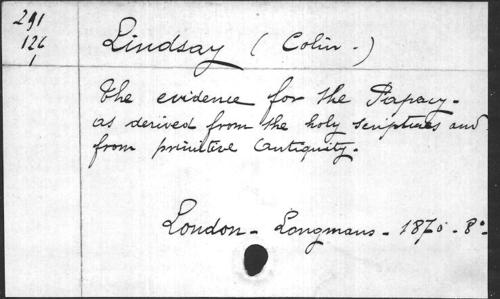 291
126
1
Lindsay (Colin.)
The evidence for the Papacy.
as derived from the holy scriptures and
from primitive Antiquity.
London - Longmans - 1870 - 8°-